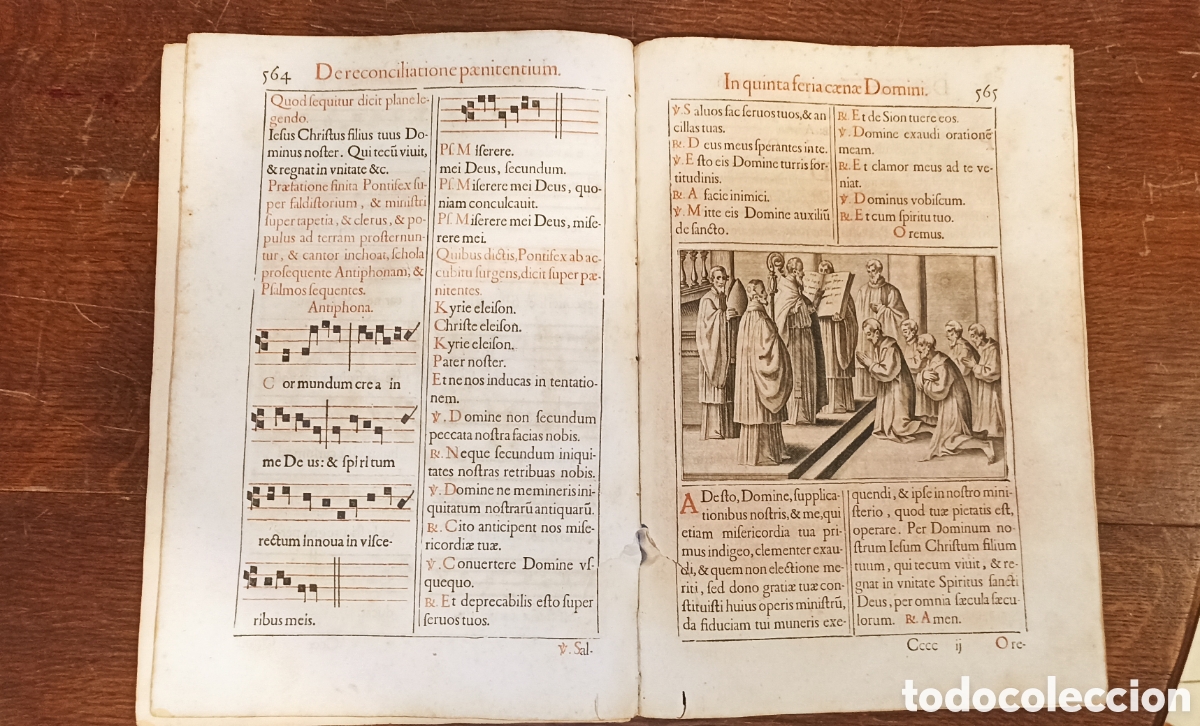 564 De reconciliatione pænitentium.
Quod sequitur dicit plane le-
gendo.
Iesus Christus filius tuus Do-
minus noster. Qui tecũ viuit,
& regnat in vnitate &c.
Præfatione finita Pontifex su-
per faldistorium, & ministri
super tapetia, & clerus, & po-
pulus ad terram prosternun-
tur, & cantor inchoat, schola
prosequente Antiphonam, &
Psalmos sequentes.
Antiphona.
Cor mundum crea in
me Deus: & spiritum
rectum innoua in visce-
ribus meis.
Ps. Miserere.
mei Deus, secundum.
Ps. Miserere mei Deus, quo-
niam conculcauit.
Ps. Miserere mei Deus, mise-
rere mei.
Quibus dictis, Pontifex ab ac-
cubitu surgens, dicit super pæ-
nitentes.
Kyrie eleison.
Christe eleison.
Kyrie eleison.
Pater noster.
Et ne nos inducas in tentatio-
nem.
℣. Domine non secundum
peccata nostra facias nobis.
℟. Neque secundum iniqui-
tates nostras retribuas nobis.
℣. Domine ne memineris ini-
quitatum nostrarũ antiquarũ.
℟. Cito anticipent nos mise-
ricordiæ tuæ.
℣. Conuertere Domine vs-
quequo.
℟. Et deprecabilis esto super
seruos tuos.
℣. Sal-
In quinta feria cænæ Domini. 565
℣. Saluos fac seruos tuos, & an
cillas tuas.
℟. Deus meus sperantes in te.
℣. Esto eis Domine turris for-
titudinis.
℟. A facie inimici.
℣. Mitte eis Domine auxiliũ
de sancto.
℟. Et de Sion tuere eos.
℣. Domine exaudi orationẽ
meam.
℟. Et clamor meus ad te ve-
niat.
℣. Dominus vobiscum.
℟. Et cum spiritu tuo.
Oremus.
ADesto, Domine, supplica-
tionibus nostris, & me, qui
etiam misericordia tua pri-
mus indigeo, clementer exau-
di, & quem non electione me-
riti, sed dono gratiæ tuæ con-
stituisti huius operis ministrũ,
da fiduciam tui muneris exe-
quendi, & ipse in nostro mini-
sterio, quod tuæ pietatis est,
operare. Per Dominum no-
strum Iesum Christum filium
tuum, qui tecum viuit, & re-
gnat in vnitate Spiritus sancti
Deus, per omnia sæcula sæcu-
lorum. ℟. Amen.
Cccc ij Ore-
todocoleccion